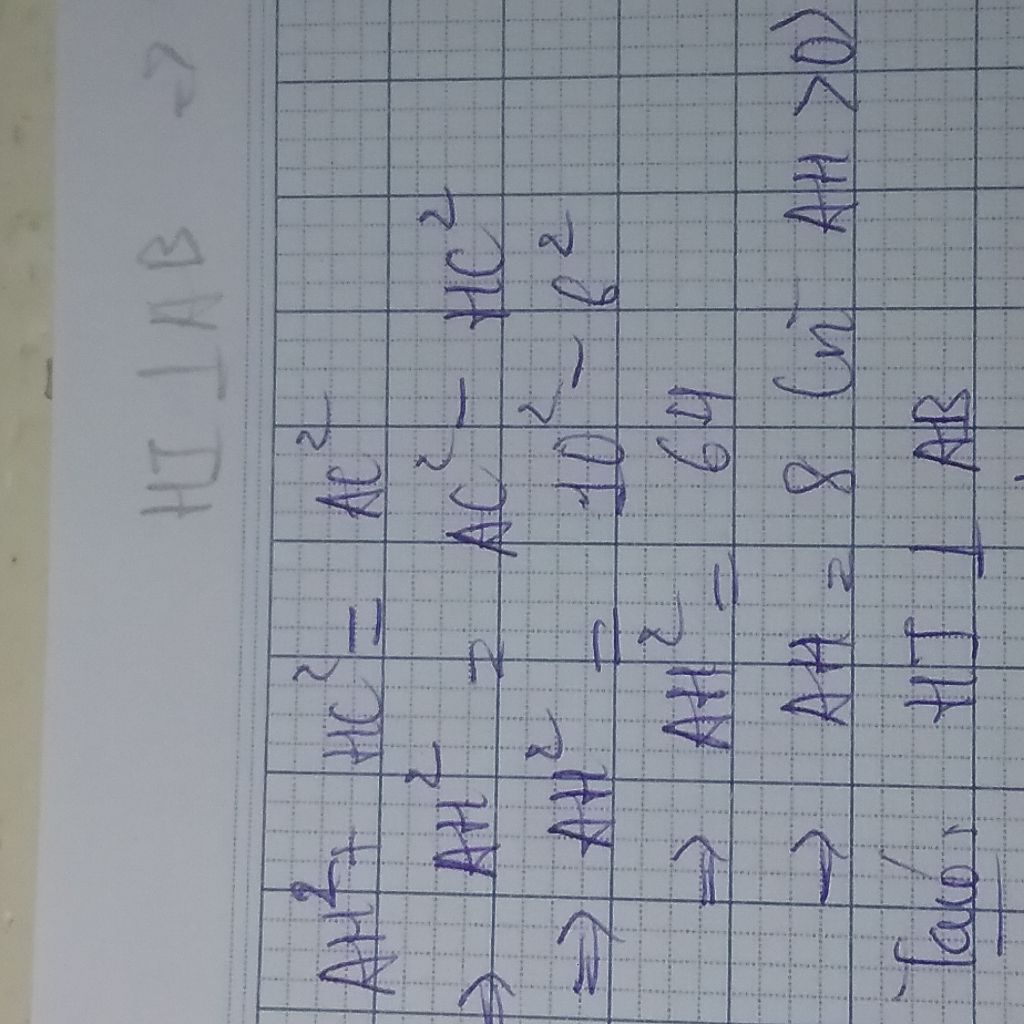 HI ⊥ AB →
AH² + HC² = AC²
⇒ AH² = AC² - HC²
⇒ AH² = 10² - 6²
⇒ AH² = 64
→ AH = 8 (vì AH > 0)
Ta có: HI ⊥ AB